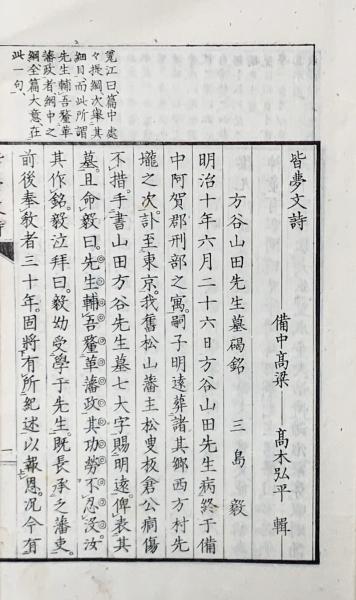 寬江曰篇中處
々提綱次舉其
細目而此所謂
先生輔吾釐革
藩政者綱中之
綱全篇大意在
此一句、
皆夢文詩
備中高梁 高木弘平 輯
方谷山田先生墓碣銘 三島毅
明治十年六月二十六日方谷山田先生病終于備
中阿賀郡刑部之寓嗣子明遠葬諸其鄉西方村先
壠之次訃至東京我舊松山藩主松叟板倉公痌傷
不措手書山田方谷先生墓七大字賜明遠俾表其
墓且命毅曰先生輔吾釐革藩政其功勞不忍沒汝
其作銘毅泣拜曰毅幼受學于先生既長承乏藩吏
前後奉教者三十年固將有所紀述以報恩況今有